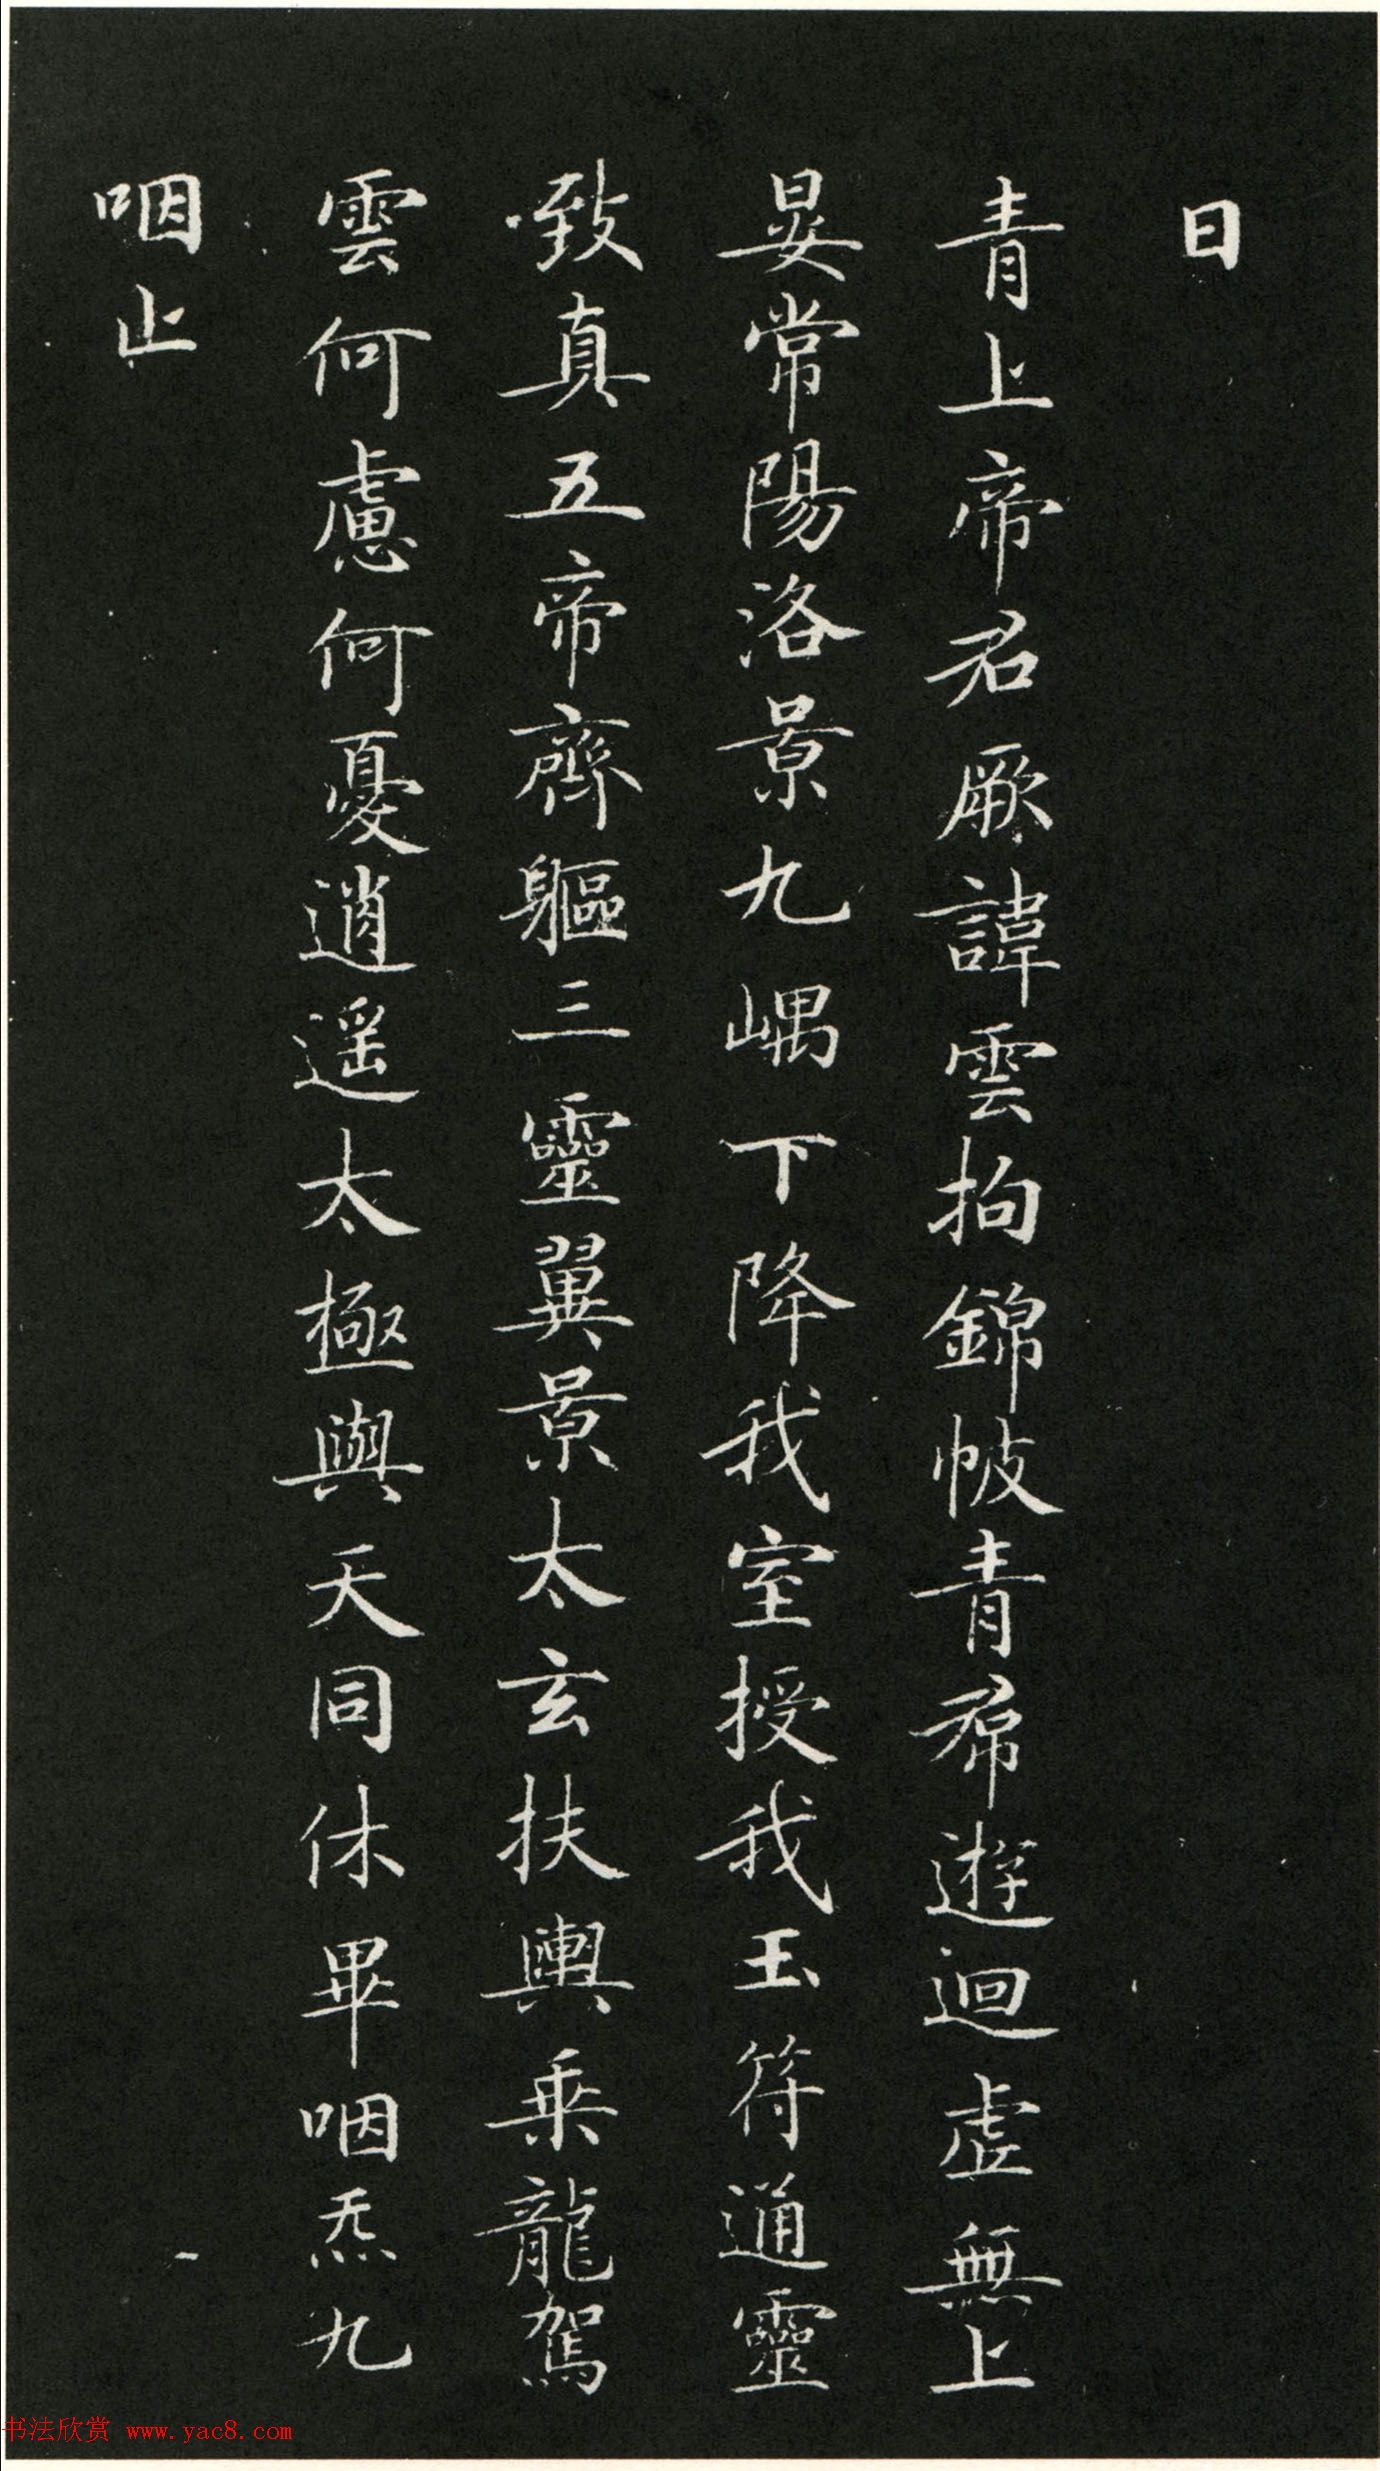 日
青上帝君厥諱雲拘錦帔青帬遊迴虛無上
晏常陽洛景九嵎下降我室授我玉符通靈
致真五帝齊軀三靈翼景太玄扶輿乘龍駕
雲何慮何憂逍遥太極與天同休畢咽炁九
咽止
书法欣赏 www.yac8.com